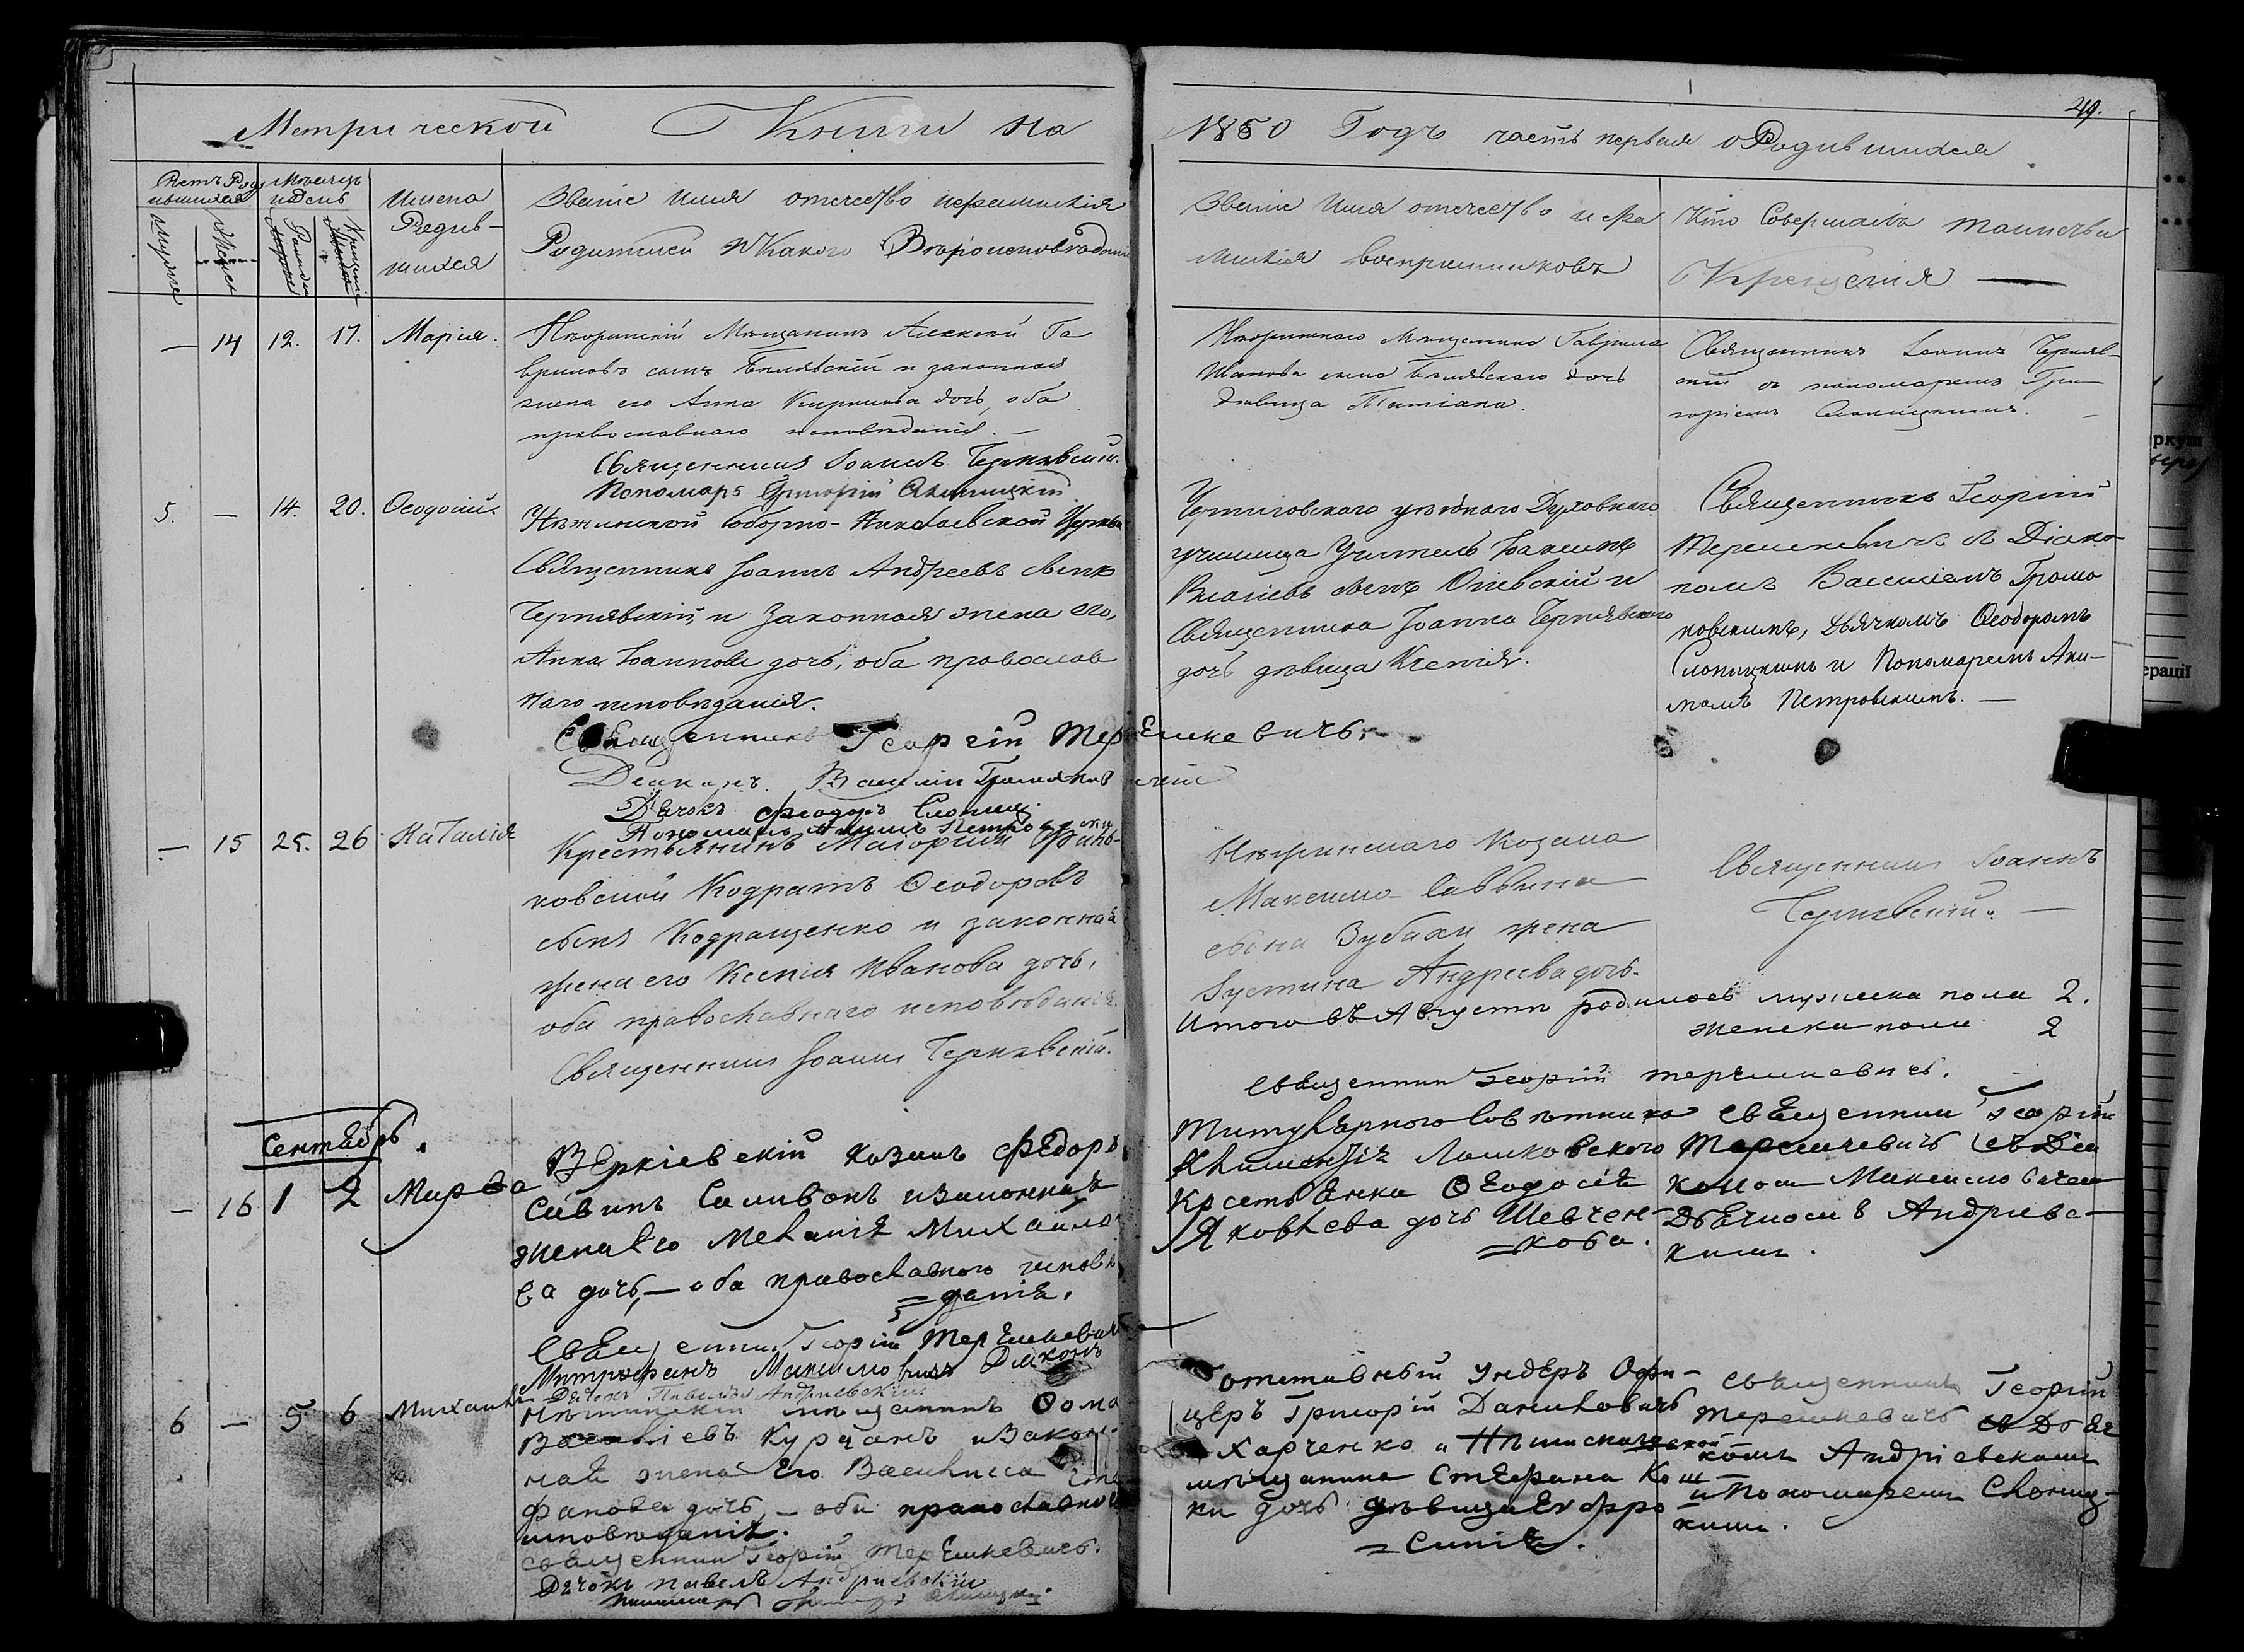 Метрической Книги на
1850 Годъ часть первая о Родившихся
49.
Месяцъ
и День
Имена
Родив-
шихся
Званіе Имя отечество и фамилія
Родителей и Какого Вероисповеданія
Званіе Имя отечество и фа
милія воспріемниковъ
Кто Совершалъ таинство
Крещенія
— 14 12. 17. Марія.
Мещанинъ Алексей Га
вриловъ сынъ и законная
жена его Анна дочь, оба
православнаго исповеданія. —
Священникъ Іоаннъ Чернявскій.
Пономарь Григорій
Мещанина Гаврила
сына дочь
девица Татіана.
Священникъ Іоаннъ Черняв-
скій съ пономаремъ Гри-
горіемъ
5. — 14. 20. Ѳеодосій.
Нежинской Соборно-Николаевской Церкви
Священникъ Іоаннъ Андреевъ сынъ
Чернявскій, и Законная жена его,
Анна Іоаннова дочь, оба православ
наго исповеданія.
Священникъ Георгій Терешкевичъ.
Діаконъ Василій
Дячокъ Феодоръ Слониц.
Пономарь Акимъ Петровскій
Черниговскаго уезднаго Духовнаго
училища Учитель Іоакимъ
сынъ Огіевскій и
Священника Іоанна Чернявскаго
дочь девица Ксенія.
Священникъ Георгій
Терешкевичъ съ Діако
номъ Василіемъ Громо
ковскимъ, Дьячкомъ Ѳеодоромъ
Слоницкимъ и Пономаремъ Аки-
момъ Петровскимъ. —
— 15 25. 26 Наталія
Крестьянинъ Маіоріи
ковской Кодратъ Ѳеодоровъ
сынъ Кодращенко и законная
жена его Ксенія Иванова дочь,
оба православнаго исповеданія.
Священникъ Іоаннъ Чернявскій.
Нежинскаго Козака
Максима Саввина
сына Зубахи жена
Іустина Андреева дочь.
Священникъ Іоаннъ
Чернявскій. —
Итого въ Августе родилось мужеска пола 2.
женска пола 2
Священникъ Георгій Терешкевичъ.
Сентябрь.
— 16 1 2 Марѳа
Веркіевскій козакъ Федоръ
Савинъ Саливонъ и законная
жена Его Меланія Михайло
ва дочь, — оба православного испове
=данія.
Священникъ Георгій Терешкевичъ
Митрофанъ Максимовичъ Діаконъ
Дячокъ Павелъ Андріевскій
Титулярного Советника
Климентія Лашковского
Крестьянка Ѳеодосія
Яковлева дочь Шевчен-
=кова.
Священникъ Георгій
Терешкевичъ съ Діа
кономъ Максимовичемъ
Дьячкомъ Андріевс-
кимъ.
6 — 5 6 Михаилъ
Нежинскій мещанинъ Ѳома
Василіевъ Курчанъ и Закон-
ная жена Его Василиса Сте
фанова дочь, — оба православного
исповеданія.
Священникъ Георгій Терешкевичъ.
Дячокъ Павелъ Андріевскій
Отставный Ундеръ Офи-
церъ Григорій Даниловичъ
Харченко и Неженской
мещанина Стефана Кош
ки дочь девица Евфро
=синія.
Священникъ Георгій
Терешкевичъ съ Дьяч
комъ Андріевскимъ
и Пономаремъ Слониц-
кимъ.